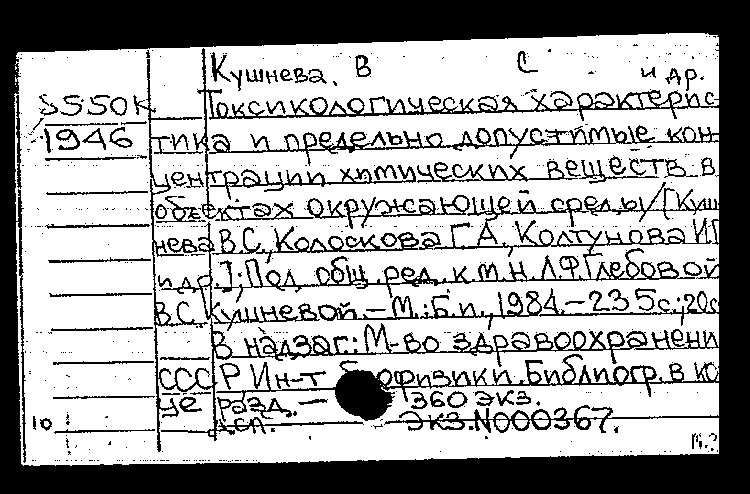 Кушнева, В С и др.
S550K Токсикологическая характерис
1946 тика и предельно допустимые кон
центрации химических веществ в
объектах окружающей среды/[Куш
нева В.С., Колоскова Г.А., Колтунова И.Г
и др.]; Под общ. ред. к.м.н. Л.Ф. Глебовой
В.С. Кушневой. – М.: Б.и., 1984. – 235с.; 20с
В надзаг.: М-во здравоохранени
СССР Ин-т биофизики. Библиогр. в ко
це разд. – 360 экз.
10 Д.сп. Экз. N000367.